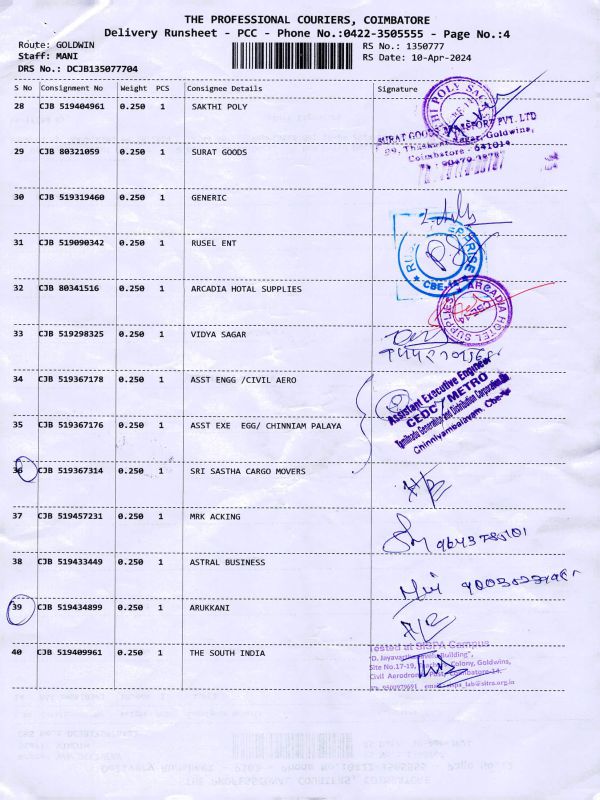 THE PROFESSIONAL COURIERS, COIMBATORE
Delivery Runsheet - PCC - Phone No.:0422-3505555 - Page No.:4
Route: GOLDWIN
RS No.: 1350777
Staff: MANI
RS Date: 10-Apr-2024
DRS No.: DCJB135077704
S No Consignment No Weight PCS Consignee Details Signature
28 CJB 519404961 0.250 1 SAKTHI POLY
SURAT GOODS TRANSPORT PVT. LTD
Goldwins,
Coimbatore - 641014
29 CJB 80321059 0.250 1 SURAT GOODS
30 CJB 519319460 0.250 1 GENERIC
31 CJB 519090342 0.250 1 RUSEL ENT
32 CJB 80341516 0.250 1 ARCADIA HOTAL SUPPLIES
ARCADIA HOTEL SUPPLIES
33 CJB 519298325 0.250 1 VIDYA SAGAR
34 CJB 519367178 0.250 1 ASST ENGG /CIVIL AERO
Assistant Executive Engineer
CEDC / METRO
Tamilnadu Generation and Distribution Corporation Ltd
Chinniyampalayam, Cbe
35 CJB 519367176 0.250 1 ASST EXE EGG/ CHINNIAM PALAYA
36 CJB 519367314 0.250 1 SRI SASTHA CARGO MOVERS
37 CJB 519457231 0.250 1 MRK ACKING
38 CJB 519433449 0.250 1 ASTRAL BUSINESS
39 CJB 519434899 0.250 1 ARUKKANI
40 CJB 519409961 0.250 1 THE SOUTH INDIA
Campus
Building",
Site No.17-19, Colony, Goldwins,
Civil Aerodrome Post, Coimbatore-14.